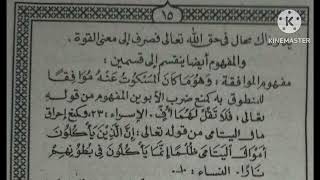 ١٥
KINEMASTER
ذاك محال في حق الله تعالى فصرف إلى معنى القوة.
والمفهوم أيضا ينقسم إلى قسمين:
مفهوم الموافقة: وَهُوَ مَا كَانَ المَسْكُوتُ عَنْهُ مُوَافِقًا
للمنطوق به كمنع ضرب الأبوين المفهوم من قوله
تعالى: فَلَا تَقُلْ لَهُمَا أُفٍّ. الإسراء: ٢٣، وكمنع إحراق
مال اليتامى من قوله تعالى: إِنَّ الَّذِينَ يَأْكُلُونَ
أَمْوَالَ اليَتَامَى ظُلْمًا إِنَّمَا يَأْكُلُونَ فِي بُطُونِهِمْ
نَارًا. النساء: ١٠.